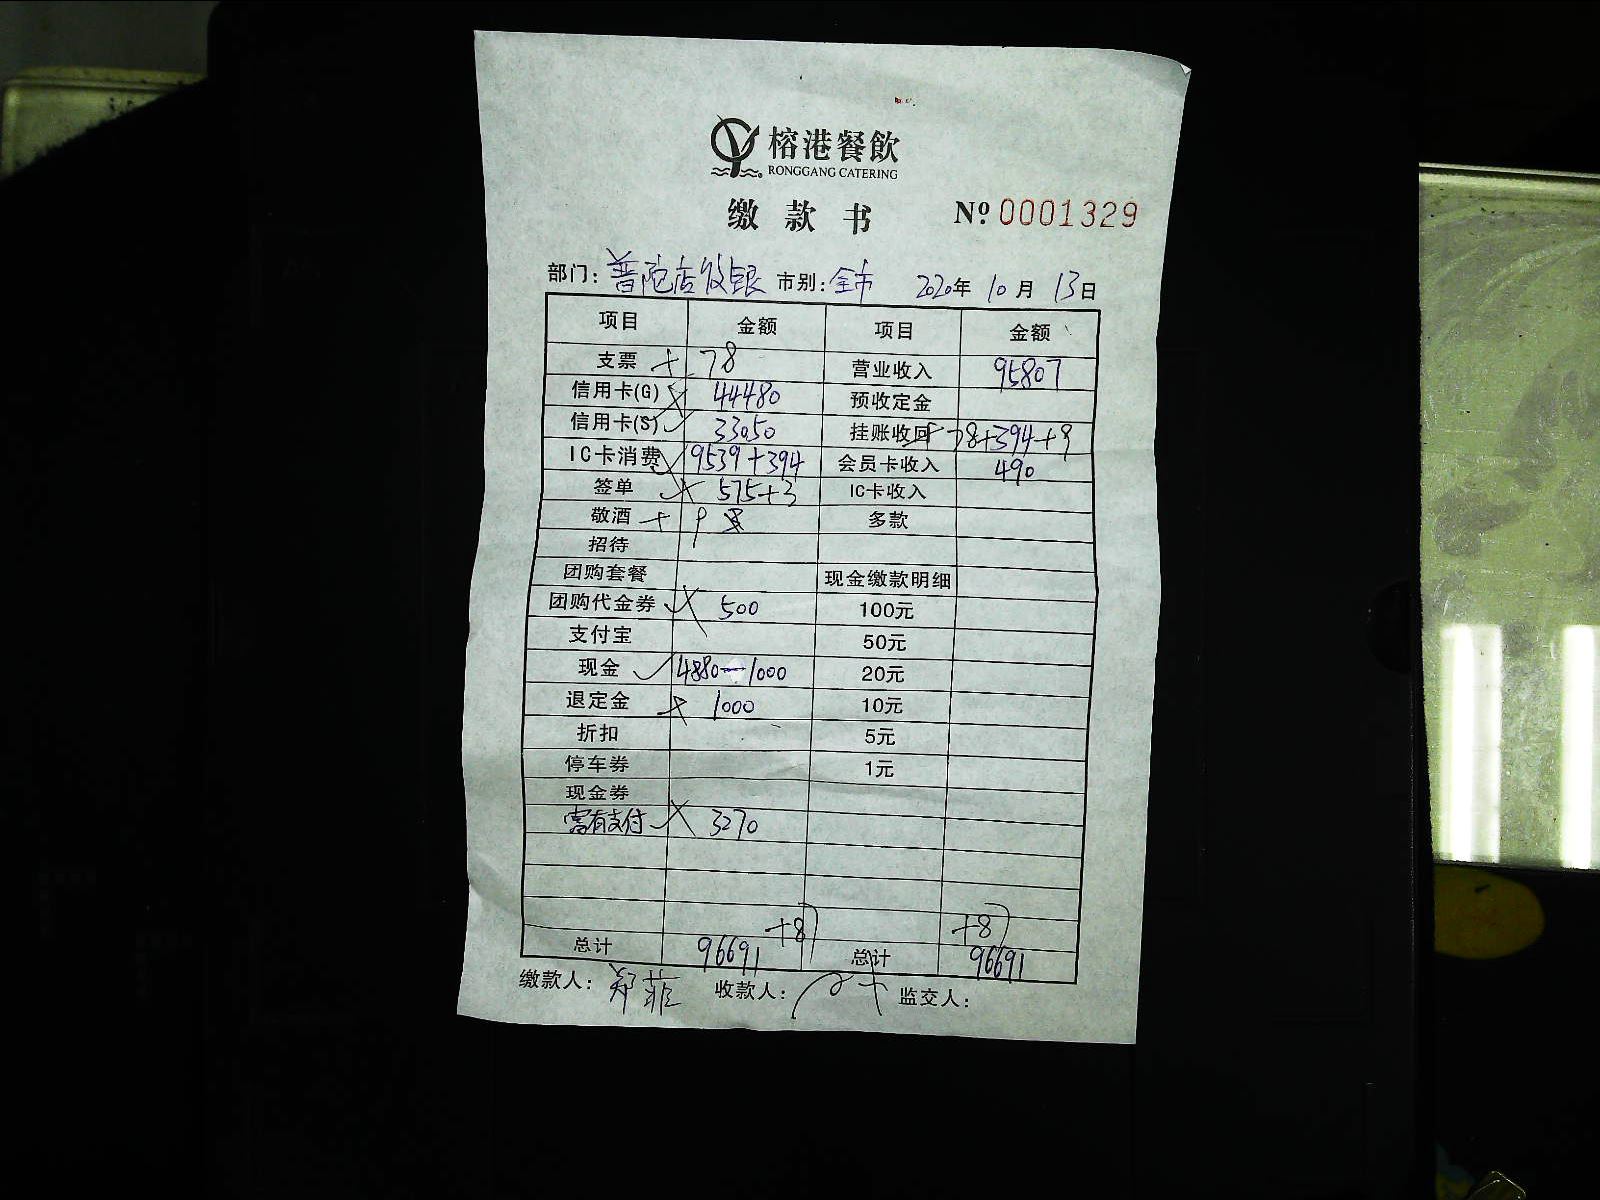 榕港餐飲
RONGGANG CATERING
缴款书 Nº 0001329
部门：普陀店收银 市别：全市 2020年 10月 13日
项目 金额 项目 金额
支票 + 78 营业收入 95807
信用卡(G) 44480 预收定金
信用卡(S) 33050 挂账收回 + 78+394+9
IC卡消费 9539+394 会员卡收入 490
签单 575+3 IC卡收入
敬酒 + 9 多款
招待
团购套餐 现金缴款明细
团购代金券 500 100元
支付宝 50元
现金 4880-1000 20元
退定金 1000 10元
折扣 5元
停车券 1元
现金券
富有支付 3270
+8 +8
总计 96691 总计 96691
缴款人：郑菲 收款人： 监交人：